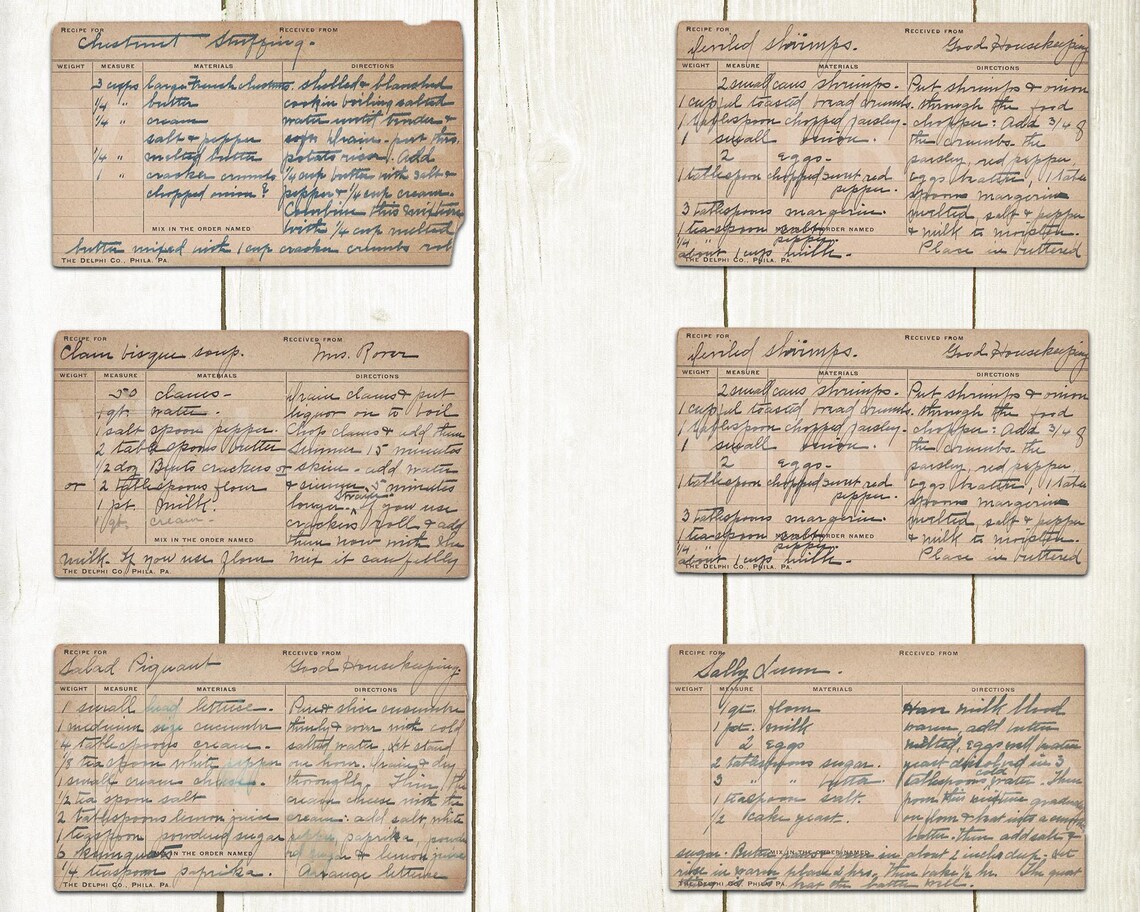 RECIPE FOR RECEIVED FROM
Chestnut Stuffing.
WEIGHT MEASURE MATERIALS DIRECTIONS
3 cups large French chestnuts. shelled & blanched
1/4 " butter cook in boiling salted
1/4 " cream water until tender &
salt & pepper soft. Drain - put thro.
1/4 " melted butter potato ricer. Add
1 " cracker crumbs 1/4 cup butter with salt &
chopped onion? pepper & 1/4 cup cream.
Combine this mixture
MIX IN THE ORDER NAMED with 1/4 cup melted
butter mixed with 1 cup cracker crumbs
THE DELPHI CO., PHILA. PA.
RECIPE FOR RECEIVED FROM
Clam bisque soup. Mrs. Rorer
WEIGHT MEASURE MATERIALS DIRECTIONS
50 clams - Drain clams & put
1 qt. water - liquor on to boil
1 salt spoon pepper. Chop clams & add them
2 table spoons butter Simmer 15 minutes
1/2 doz crackers or skim - add water
or 2 tablespoons flour & simmer 5 minutes
1 pt. milk. longer. Strain if you use
1 qt. cream - crackers roll & add
MIX IN THE ORDER NAMED them now with the
milk. If you use flour mix it carefully
THE DELPHI CO., PHILA. PA.
RECIPE FOR RECEIVED FROM
Salad Piquant Good Housekeeping.
WEIGHT MEASURE MATERIALS DIRECTIONS
1 small head lettuce. Pare & slice cucumber
1 medium size cucumber thinly & cover with cold
4 tablespoons cream. salted water, let stand
1/8 teaspoon white pepper one hour. Drain & dry
1 small cream cheese. thoroughly. Thin the
1/2 tea spoon salt cream cheese with the
2 tablespoons lemon juice cream: add salt, white
1 teaspoon powdered sugar pepper, paprika,
6 kumquats MIX IN THE ORDER NAMED sugar & lemon juice
1/4 teaspoon paprika. Arrange lettuce
THE DELPHI CO., PHILA. PA
RECIPE FOR RECEIVED FROM
Deviled shrimps. Good Housekeeping
WEIGHT MEASURE MATERIALS DIRECTIONS
2 small cans shrimps. Put shrimps & onion
1 cupful toasted bread crumbs. through the food
1 tablespoon chopped parsley. chopper: Add 3/4 of
1 small onion. the crumbs. the
2 eggs - parsley, red pepper,
1 tablespoon chopped sweet red eggs beaten, 1 table
pepper. spoons margerine
3 tablespoons margerine. melted, salt & pepper
1 teaspoon salt MIX IN THE ORDER NAMED & milk to moisten.
1/4 " pepper. Place in buttered
about 1 cup milk.
THE DELPHI CO., PHILA. PA.
RECIPE FOR RECEIVED FROM
Deviled shrimps. Good Housekeeping
WEIGHT MEASURE MATERIALS DIRECTIONS
2 small cans shrimps. Put shrimps & onion
1 cupful toasted bread crumbs. through the food
1 tablespoon chopped parsley. chopper: Add 3/4 of
1 small onion. the crumbs. the
2 eggs - parsley, red pepper,
1 tablespoon chopped sweet red eggs beaten, 1 table
pepper. spoons margerine
3 tablespoons margerine. melted, salt & pepper
1 teaspoon salt MIX IN THE ORDER NAMED & milk to moisten.
1/4 " pepper. Place in buttered
about 1 cup milk.
THE DELPHI CO., PHILA. PA.
RECIPE FOR RECEIVED FROM
Sally Lunn.
WEIGHT MEASURE MATERIALS DIRECTIONS
1 qt. flour Have milk blood
1 pt. milk warm, add butter
2 eggs melted, eggs well beaten
2 tablespoons sugar. yeast dissolved in 3
3 " " butter. tablespoons cold water. Then
1 teaspoon salt. pour this mixture gradually
1/2 cake yeast. on flour & beat into a smooth
batter. Then add salt &
sugar. Butter MIX IN THE ORDER NAMED pour in about 2 inches deep. Let
rise in warm place 2 hrs. Then bake 1/2 hr. The great
thing is to beat the batter well.
THE DELPHI CO., PHILA. PA.